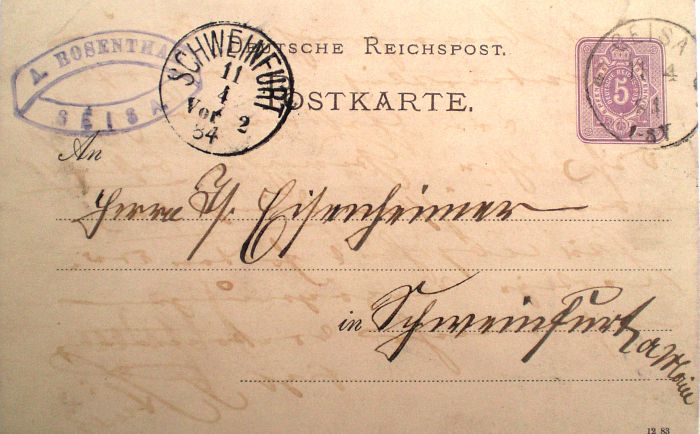 A. ROSENTHA
SEISA
SCHWEINFURT
11
4
Vor 2
84
DEUTSCHE REICHSPOST.
POSTKARTE.
5
GEISA
4
84
7-8V
An
Herrn Eisenheimer
in Schweinfurt
a Main
12 83